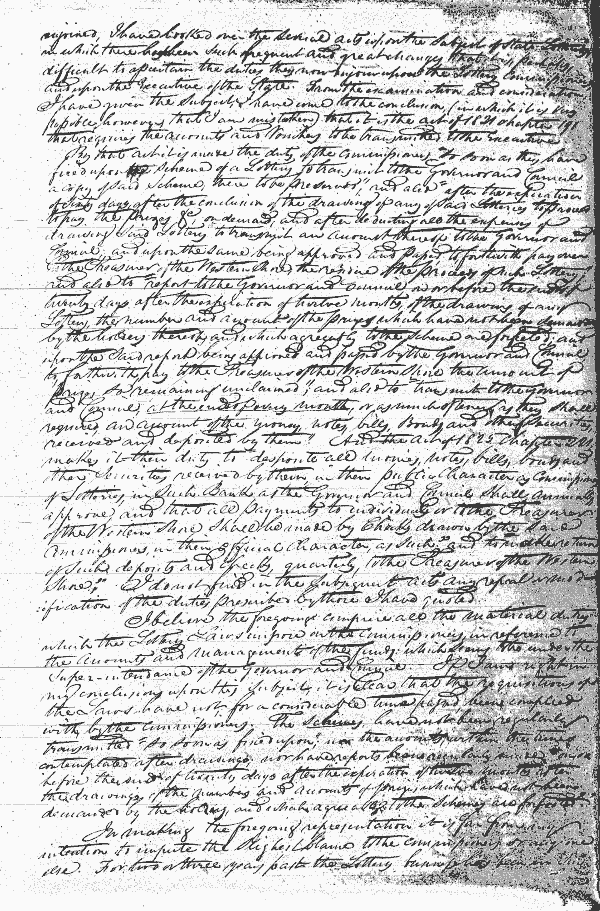 enjoined, I have looked over the several acts upon the subject of State Lotteries
in which there has been such frequent and great changes that it is perfectly
difficult to ascertain the duties they now enjoin upon the Lottery Commissioners
and upon the Executive of the State. From the examination and consideration
I have given the subject, I have come to the conclusion, (in which it is very
possible, however, that I am mistaken) that it is the act of 1821 chapter 191
that requires the accounts and vouchers to be transmitted to the Executive
By that act it is made the duty of the commissioners, "so soon as they have
fixed upon the scheme of a Lottery to transmit to the Governor and Council
a copy of said Scheme, there to be preserved," and also "after the expiration
of sixty days after the conclusion of the drawing of any of said Lotteries to proceed
to pay the prizes &c on demand, and after deducting all the expenses of
drawing said Lottery, to transmit an account thereof to the Governor and
Council, and upon the same being approved and passed to forthwith pay over
to the Treasurer of the Western Shore, the residue of the proceeds of such Lottery,"
and also to "report to the Governor and Council on or before the end of
twenty days after the expiration of twelve months, of the drawing of any
Lottery, the number and amount of the prizes which have not been demanded
by the holders thereof, and which agreeably to the Scheme are forfeited; and
upon the said report being approved and passed by the Governor and Council
to forthwith pay to the Treasurer of the Western Shore the amount of
prizes so remaining unclaimed," and also to "transmit to the Governor
and Council, at the end of every month, or as much oftener as they shall
require, an account of the money, notes, bills, bonds and other securities
received and deposited by them." And the act of 1822 Chapter
makes it their duty to deposite all monies, notes, bills, bonds and
other securities received by them, in their public character as Commissioners
of Lotteries, in such Bank as the Governor and Council shall annually
approve, and that all payments to individuals or to the Treasurer
of the Western Shore shall be made by Checks drawn by the said
Commissioners, in their official character, as such, and to make return
of such deposits and checks, quarterly to the Treasurer of the Western
Shore." I do not find in the subsequent acts any repeal or
modification of the duties prescribed by those I have quoted.
I believe the foregoing comprise all the material duties
which the Lottery Laws impose on the commissioners, in reference to
the accounts and management of the funds, which bring them under the
Super-intendance of the Governor and Council. If I am right in
my conclusions upon this subject, it is clear that the requisitions of
the Laws have not, for a considerable time past, been complied
with by the commissioners. The Schemes have not been regularly
transmitted "so soon as fixed upon," nor the accounts within the time
contemplated after drawings, nor have reports been regularly made
before the end of twenty days after the expiration of twelve months after
the drawings, of the number and amount of prizes which have not been
demanded by the holders, and which agreeably to the Schemes are forfeited
In making the foregoing representation it is far from my
intention to impute the slightest blame to the commissioners or any one
else. For two or three years past the Lottery business has been in